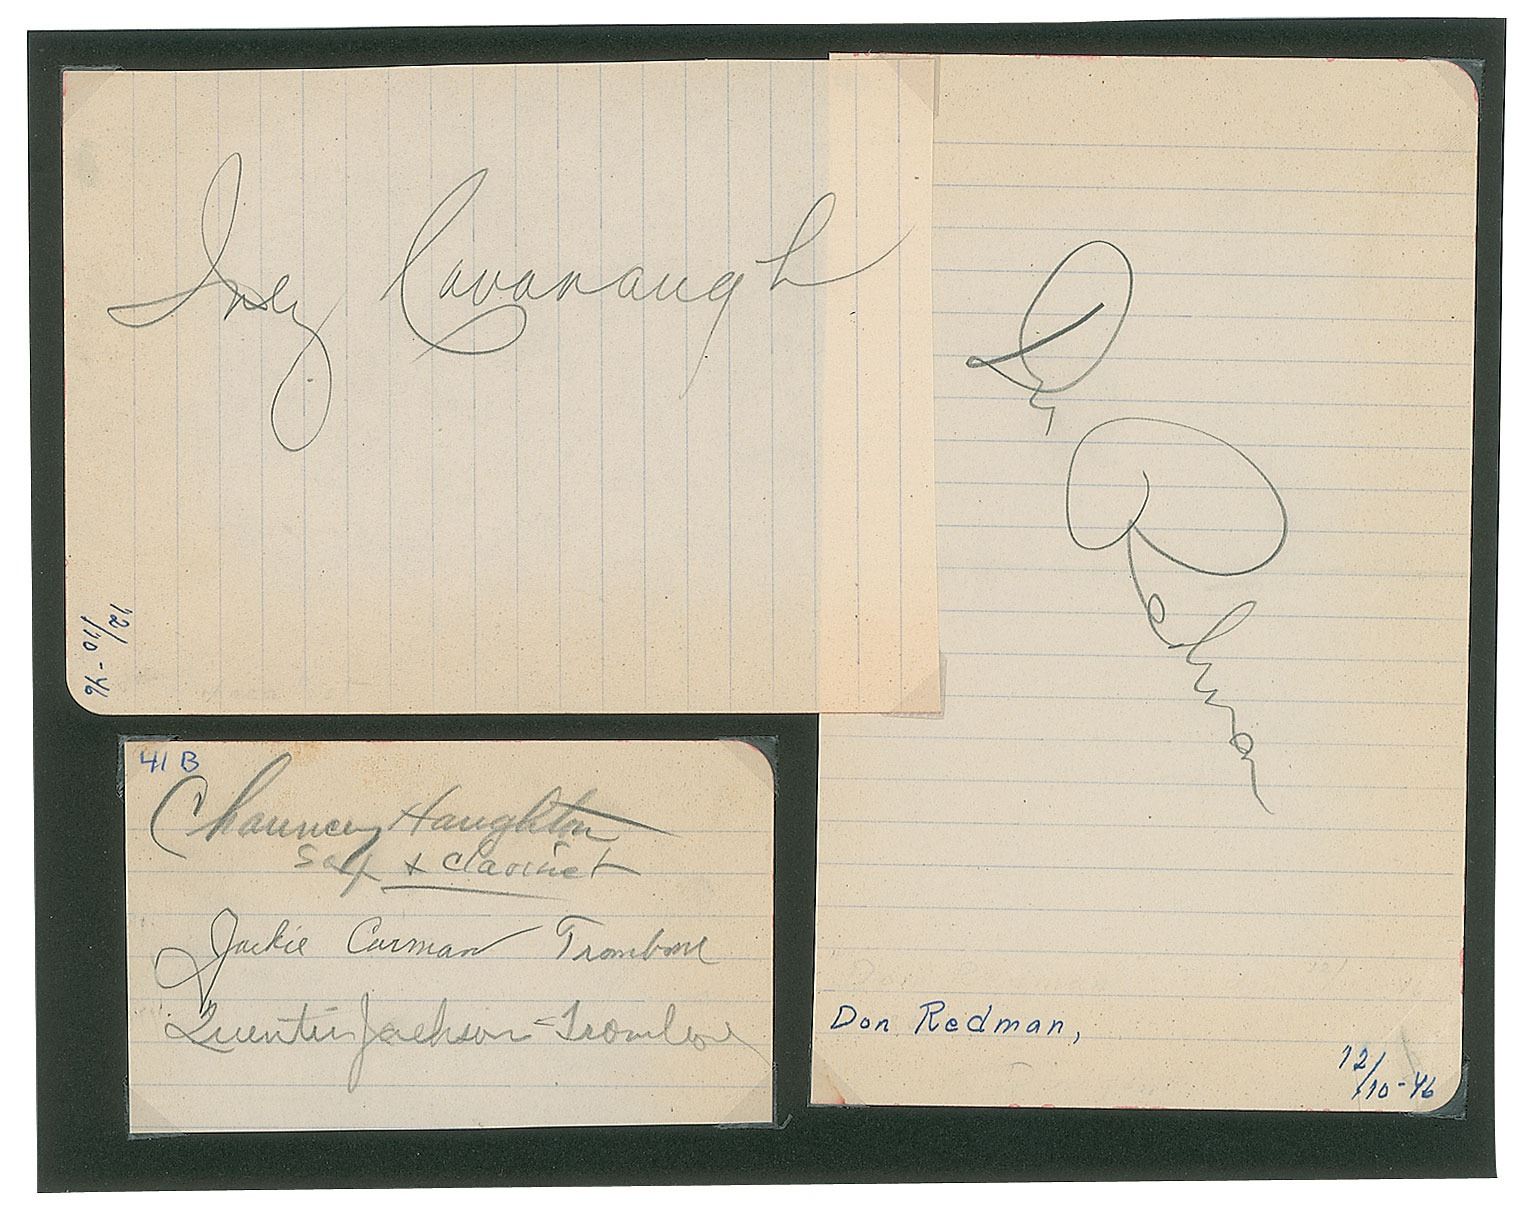 Inez Cavanaugh
12/10-46
D Redman
Don Redman,
12/10-46
41 B
Chauncey Haughton
Sax + Clarinet
Jackie Carman Trombone
Quentin Jackson = Trombone